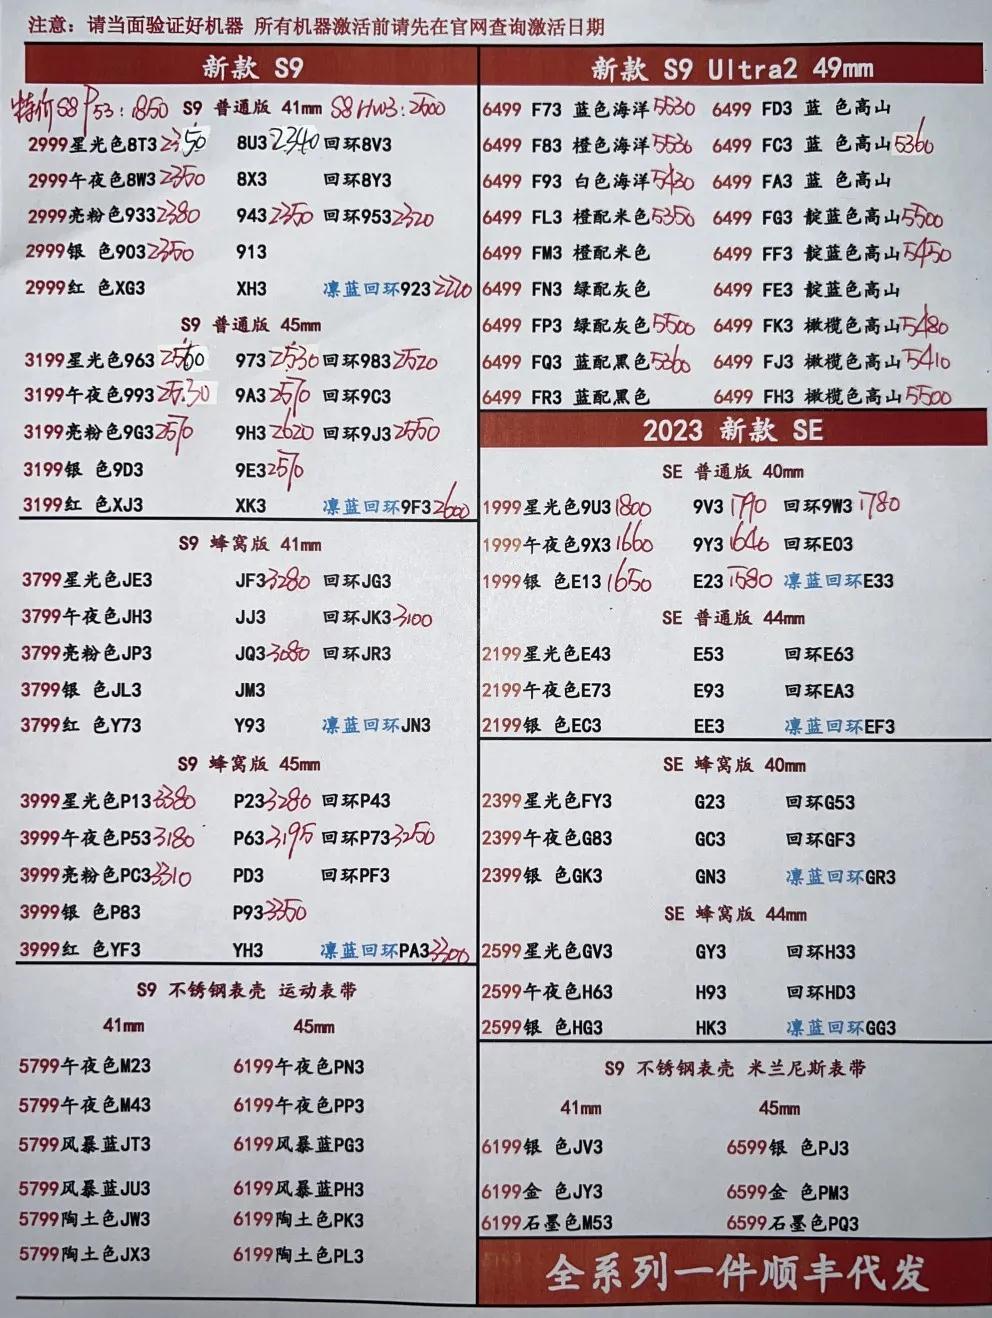 注意：请当面验证好机器 所有机器激活前请先在官网查询激活日期
新款 S9
特价 S8 P53：1850 S9 普通版 41mm S8 HW3：2500
2999星光色8T3 2350 8U3 2340 回环8V3
2999午夜色8W3 2350 8X3 回环8Y3
2999亮粉色933 2380 943 2350 回环953 2320
2999银 色903 2350 913
2999红 色XG3 XH3 凛蓝回环923 2220
S9 普通版 45mm
3199星光色963 2560 973 2530 回环983 2520
3199午夜色993 2530 9A3 2570 回环9C3
3199亮粉色9G3 2570 9H3 2620 回环9J3 2550
3199银 色9D3 9E3 2570
3199红 色XJ3 XK3 凛蓝回环9F3 2600
S9 蜂窝版 41mm
3799星光色JE3 JF3 3280 回环JG3
3799午夜色JH3 JJ3 回环JK3 3100
3799亮粉色JP3 JQ3 3080 回环JR3
3799银 色JL3 JM3
3799红 色Y73 Y93 凛蓝回环JN3
S9 蜂窝版 45mm
3999星光色P13 3380 P23 3280 回环P43
3999午夜色P53 3180 P63 3195 回环P73 3250
3999亮粉色PC3 3310 PD3 回环PF3
3999银 色P83 P93 3350
3999红 色YF3 YH3 凛蓝回环PA3 3300
S9 不锈钢表壳 运动表带
41mm 45mm
5799午夜色M23 6199午夜色PN3
5799午夜色M43 6199午夜色PP3
5799风暴蓝JT3 6199风暴蓝PG3
5799风暴蓝JU3 6199风暴蓝PH3
5799陶土色JW3 6199陶土色PK3
5799陶土色JX3 6199陶土色PL3
新款 S9 Ultra2 49mm
6499 F73 蓝色海洋 5530 6499 FD3 蓝 色高山
6499 F83 橙色海洋 5530 6499 FC3 蓝 色高山 5360
6499 F93 白色海洋 5430 6499 FA3 蓝 色高山
6499 FL3 橙配米色 5350 6499 FG3 靛蓝色高山 5500
6499 FM3 橙配米色 6499 FF3 靛蓝色高山 5450
6499 FN3 绿配灰色 6499 FE3 靛蓝色高山
6499 FP3 绿配灰色 5500 6499 FK3 橄榄色高山 5480
6499 FQ3 蓝配黑色 5360 6499 FJ3 橄榄色高山 5410
6499 FR3 蓝配黑色 6499 FH3 橄榄色高山 5500
2023 新款 SE
SE 普通版 40mm
1999星光色9U3 1800 9V3 1790 回环9W3 1780
1999午夜色9X3 1660 9Y3 1640 回环E03
1999银 色E13 1650 E23 1580 凛蓝回环E33
SE 普通版 44mm
2199星光色E43 E53 回环E63
2199午夜色E73 E93 回环EA3
2199银 色EC3 EE3 凛蓝回环EF3
SE 蜂窝版 40mm
2399星光色FY3 G23 回环G53
2399午夜色G83 GC3 回环GF3
2399银 色GK3 GN3 凛蓝回环GR3
SE 蜂窝版 44mm
2599星光色GV3 GY3 回环H33
2599午夜色H63 H93 回环HD3
2599银 色HG3 HK3 凛蓝回环GG3
S9 不锈钢表壳 米兰尼斯表带
41mm 45mm
6199银 色JV3 6599银 色PJ3
6199金 色JY3 6599金 色PM3
6199石墨色M53 6599石墨色PQ3
全系列一件顺丰代发